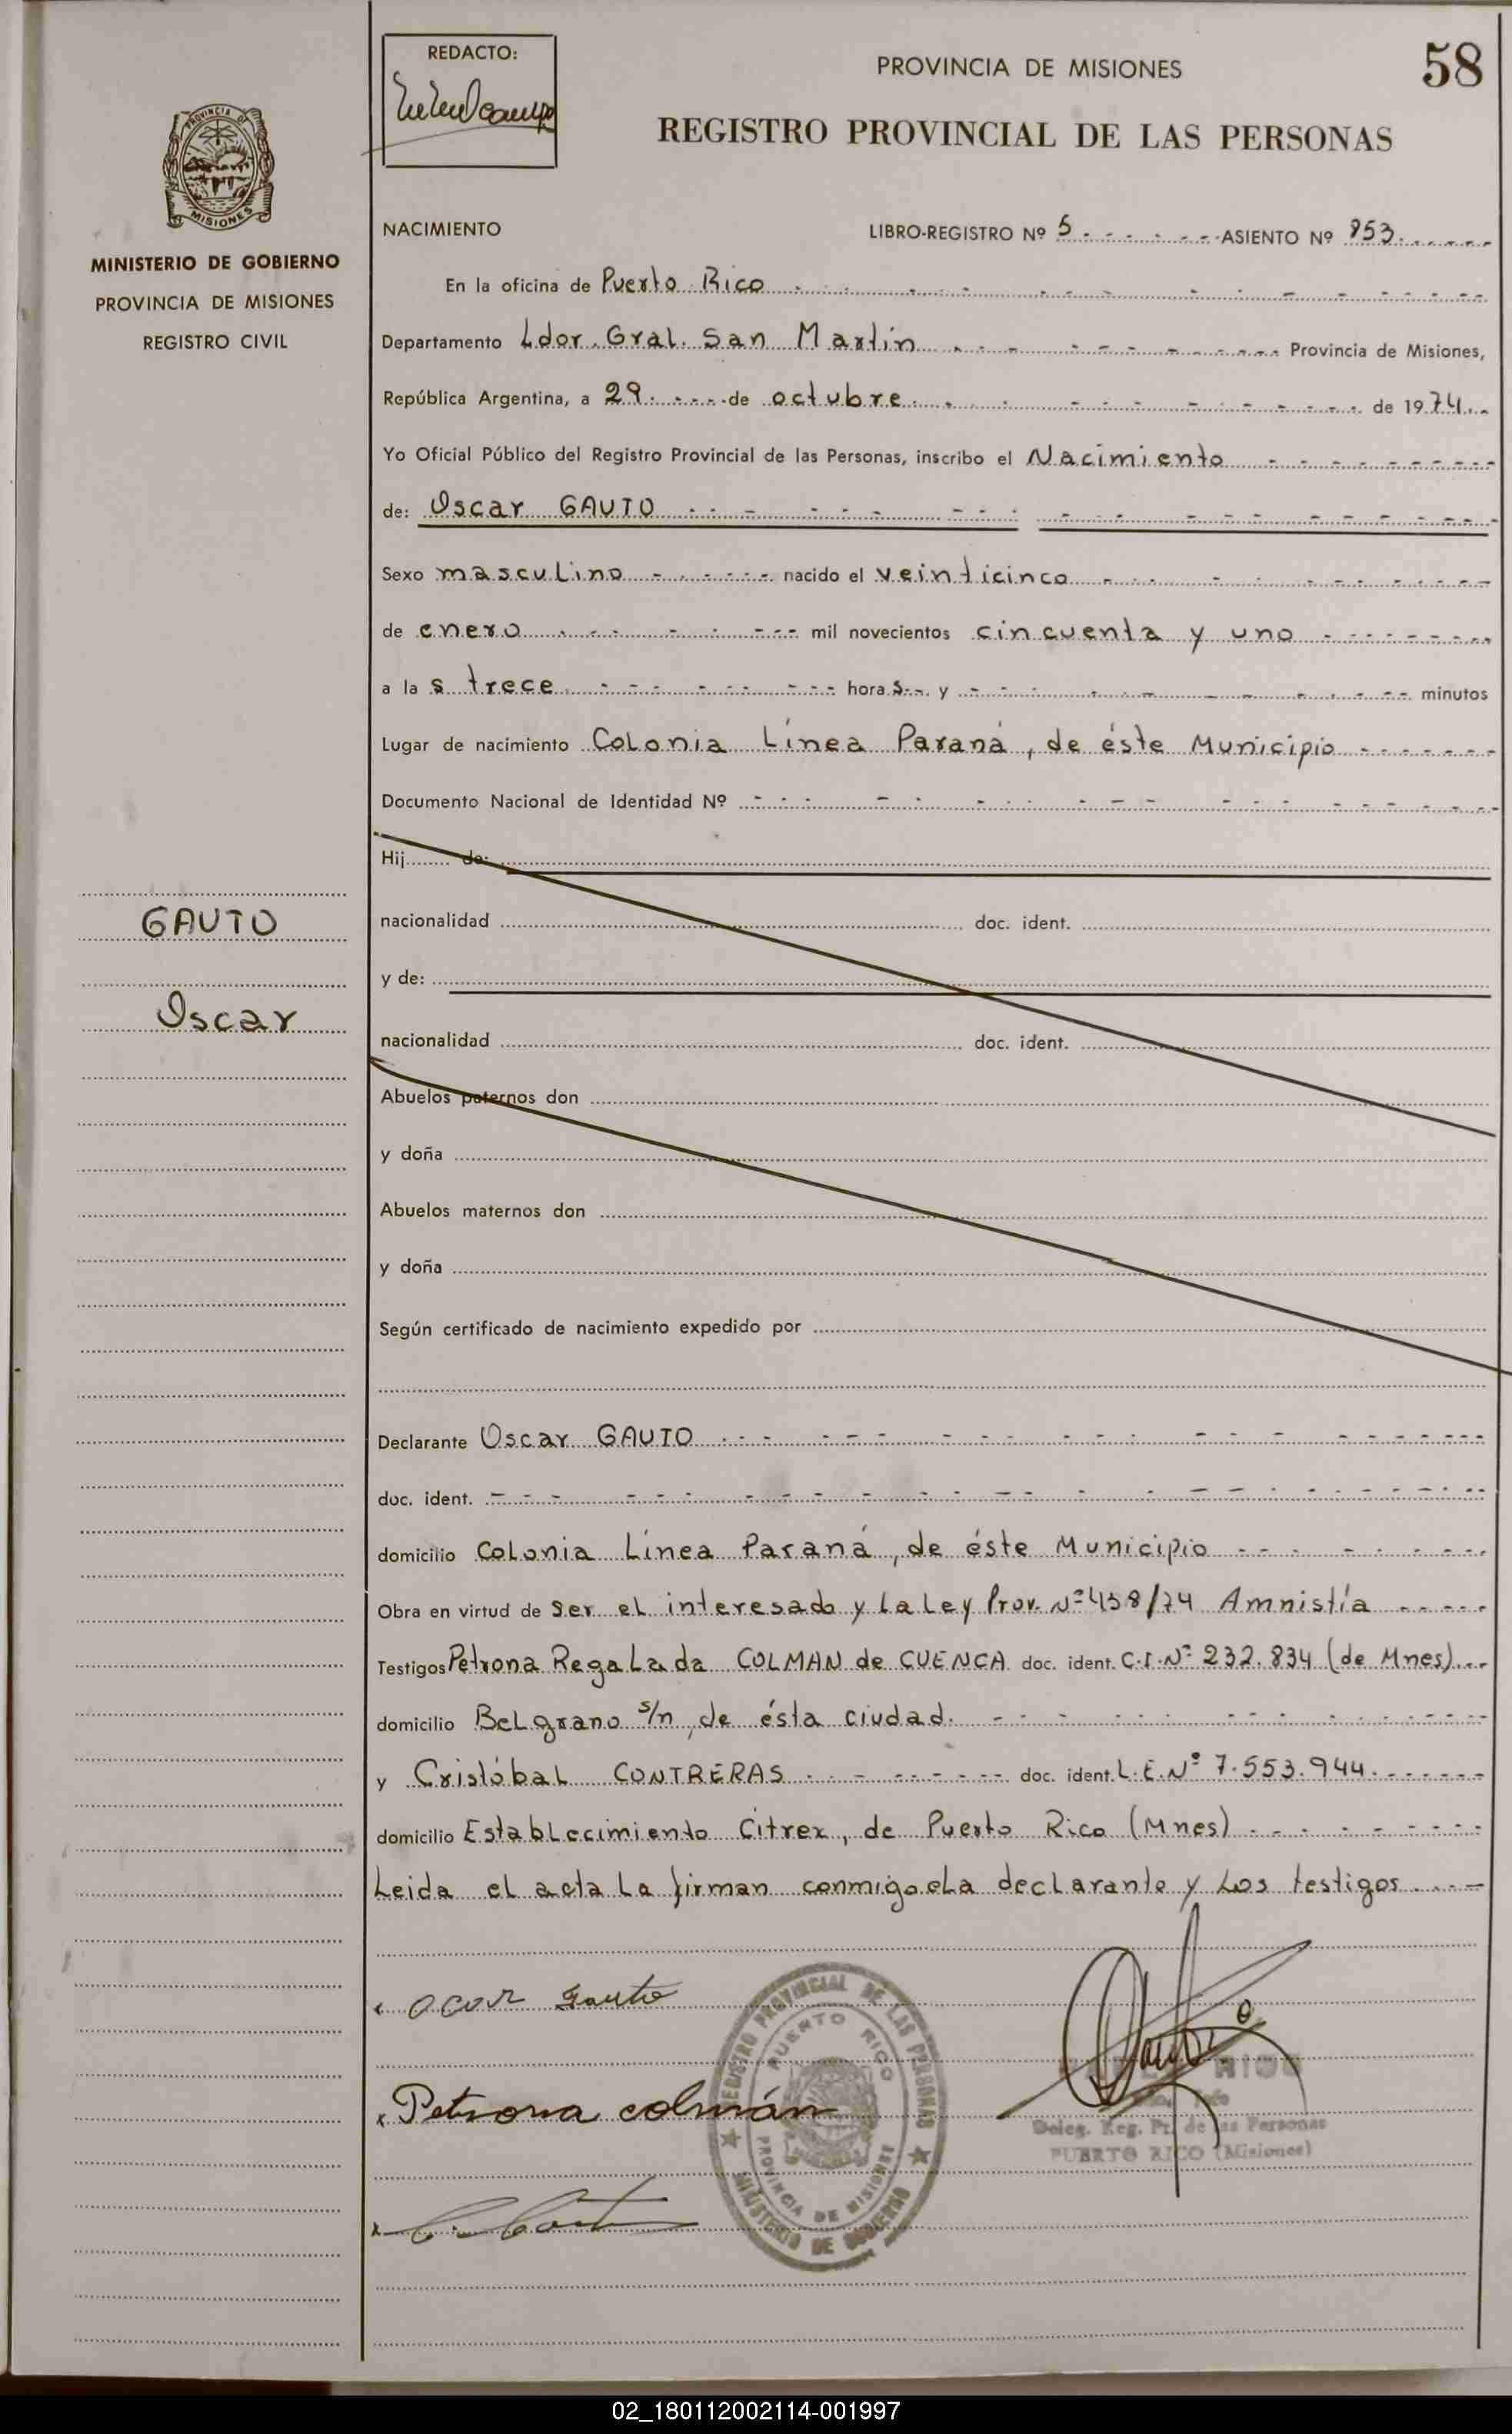 REDACTO:
PROVINCIA DE MISIONES
58
REGISTRO PROVINCIAL DE LAS PERSONAS
PROVINCIA DE
MISIONES
MINISTERIO DE GOBIERNO
PROVINCIA DE MISIONES
REGISTRO CIVIL
NACIMIENTO
LIBRO-REGISTRO Nº 5 ASIENTO Nº 853.
En la oficina de Puerto Rico
Departamento Ldor. Gral. San Martín Provincia de Misiones,
República Argentina, a 29 de octubre de 1974
Yo Oficial Público del Registro Provincial de las Personas, inscribo el Nacimiento
de: Oscar GAUTO
Sexo masculino nacido el veinticinco
de enero mil novecientos cincuenta y uno
a las trece horas y minutos
Lugar de nacimiento Colonia Línea Paraná, de éste Municipio
Documento Nacional de Identidad Nº
Hij de:
nacionalidad doc. ident.
y de:
nacionalidad doc. ident.
Abuelos paternos don
y doña
Abuelos maternos don
y doña
Según certificado de nacimiento expedido por
GAUTO
Oscar
Declarante Oscar GAUTO
doc. ident.
domicilio Colonia Línea Paraná, de éste Municipio
Obra en virtud de Ser el interesado y la Ley Prov. Nº 458/74 Amnistía
Testigos Petrona Regalada COLMAN de CUENCA doc. ident. C.I. Nº 232.834 (de Mnes)
domicilio Belgrano s/n, de ésta ciudad.
y Cristóbal CONTRERAS doc. ident. L.E. Nº 7.553.944.
domicilio Establecimiento Citrex, de Puerto Rico (Mnes)
Leida el acta la firman conmigo el declarante y los testigos
ocar Gauto
Petrona colmán
REGISTRO PROVINCIAL DE LAS PERSONAS
PUERTO RICO
PROVINCIA DE MISIONES
MINISTERIO DE GOBIERNO
Deleg. Reg. Pr. de las Personas
PUERTO RICO (Misiones)
02_180112002114-001997